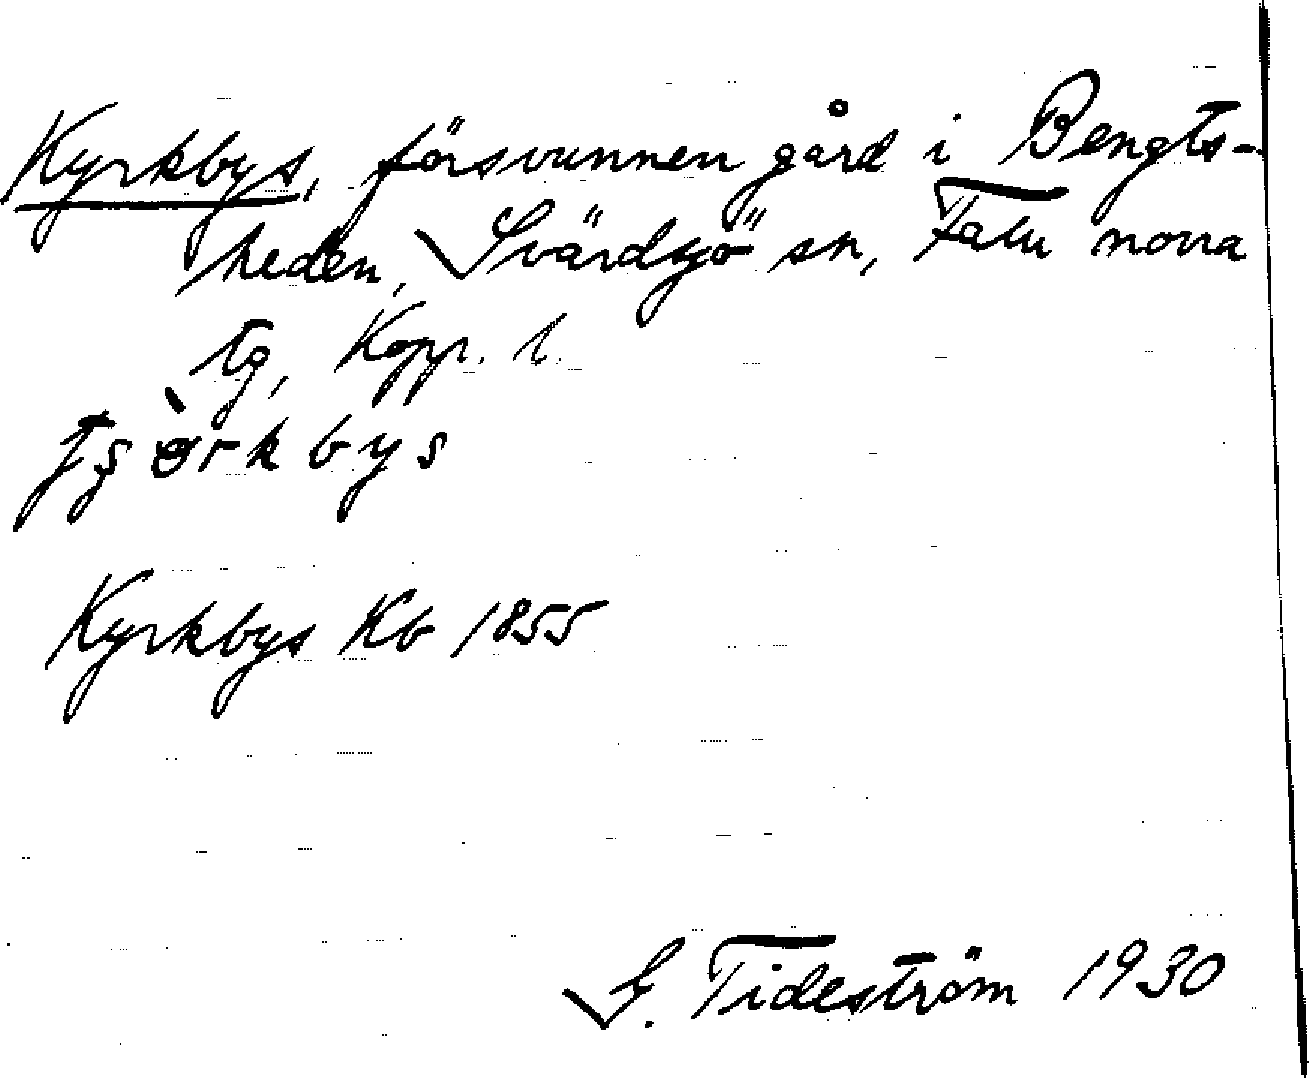 Kyrkbys, försvunnen gård i Bengts-
heden, Svärdsjö sn, Falu norra
tg, Kopp. l.
Kyrkbys Kb 1855
G. Tideström 1930